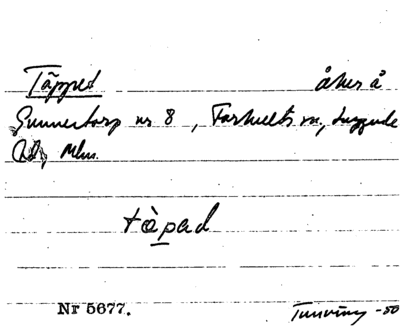 Täpped åker å
Gunnestorp nr 8, Farhults sn, Luggude
hd, Mlm.
tàpad
Nr 5677. Tunving -50